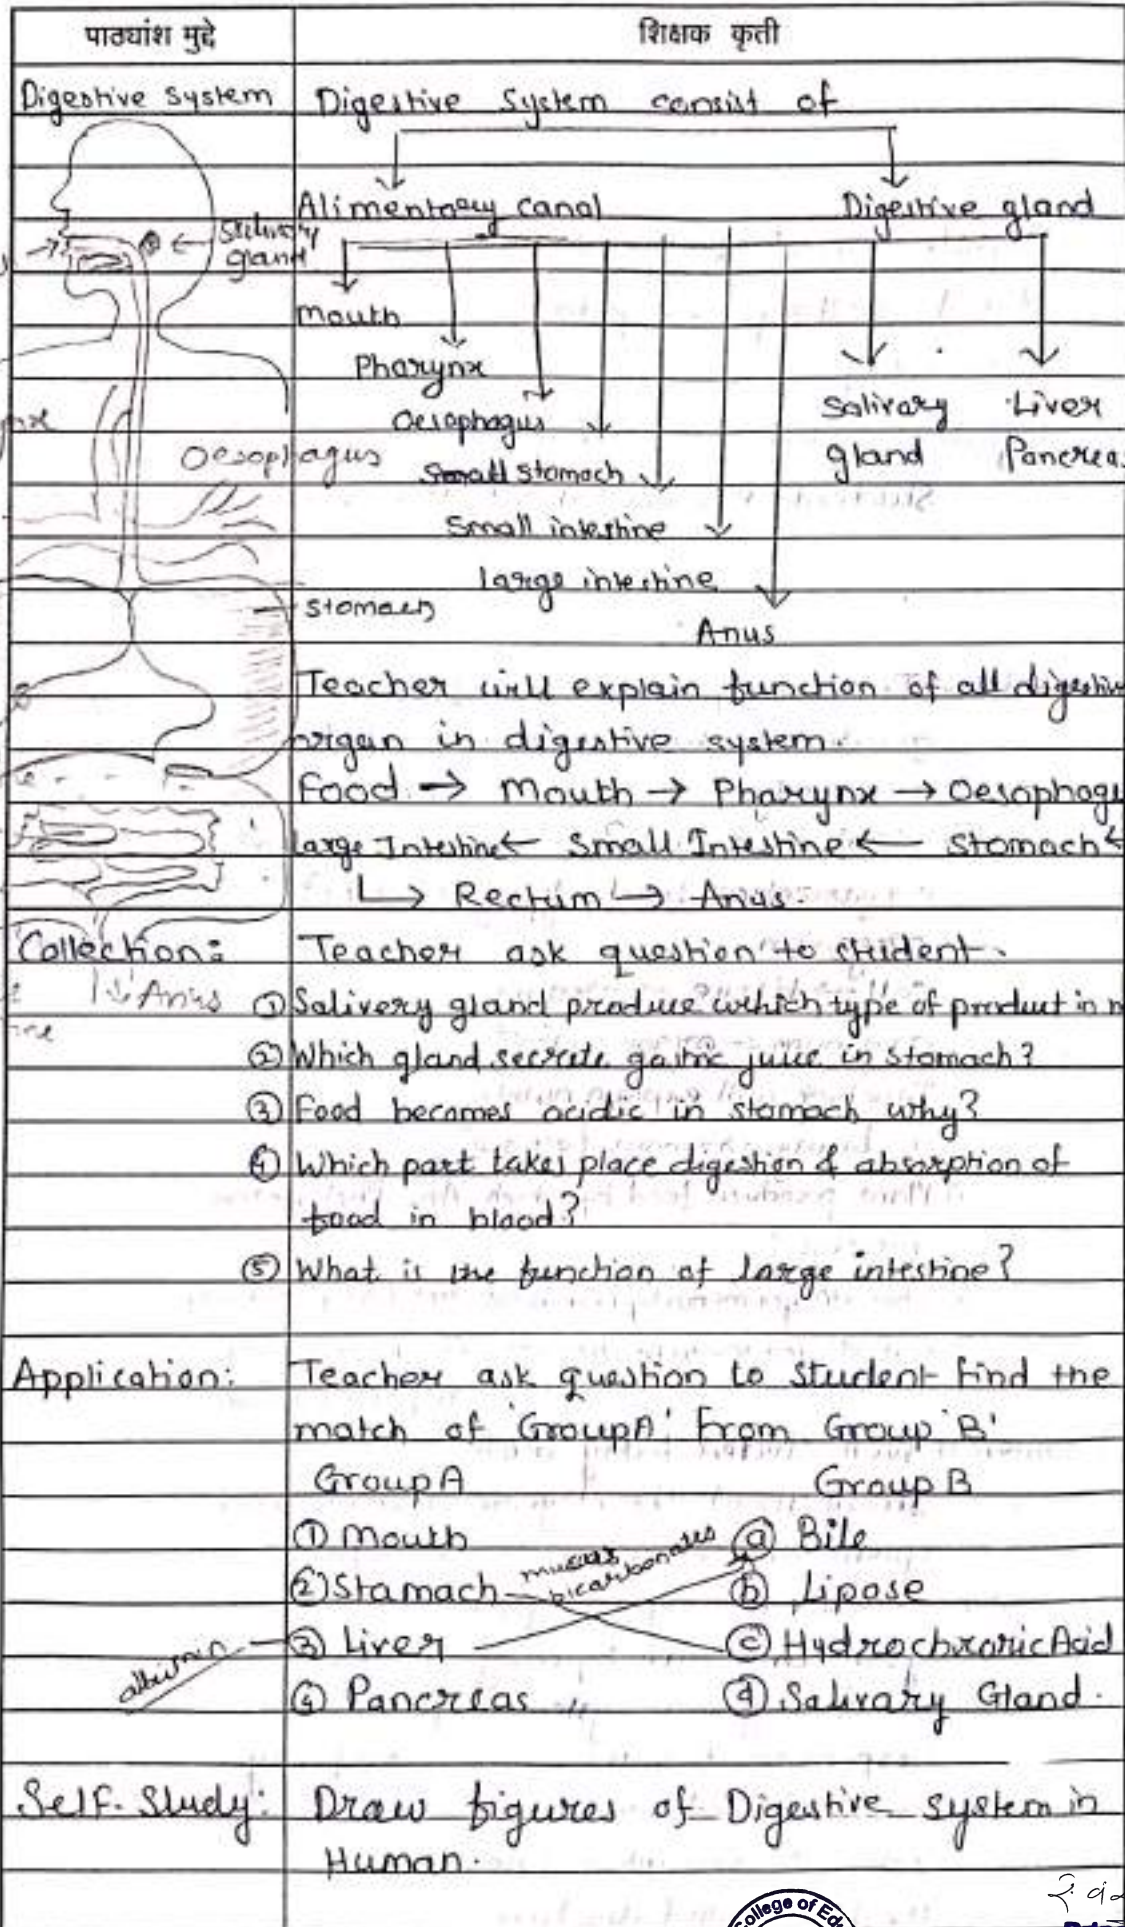 पाठ्यांश मुद्दे शिक्षक कृती
Digestive System Digestive System consist of
Alimentary canal Digestive gland
Salivery
gland
Mouth
Pharynx
Oesophagus
Salivary Liver
gland Pancreas
Oesophagus
Small stomach
Small intestine
large intestine
stomach
Anus
Teacher will explain function of all digestive
organ in digestive system.
Food → Mouth → Pharynx → Oesophagu
large Intestine ← Small Intestine ← Stomach ←
↳ Rectum ↳ Anus.
Collection: Teacher ask question to student.
Anus
① Salivery gland produce which type of product in m
② Which gland secrete gastric juice in stomach?
③ Food becomes acidic in stomach why?
④ Which part takes place digestion & absorption of
food in blood?
⑤ What is the function of large intestine?
Application: Teacher ask question to Student find the
match of 'Group A' From Group 'B'
Group A Group B
① Mouth ⓐ Bile
mucus
bicarbonates
② Stamach ⓑ Lipose
③ Liver ⓒ Hydrochroric Acid
albumin
④ Pancreas ⓓ Salivary Gland.
Self-Study: Draw figures of Digestive system in
Human.
College of Ed